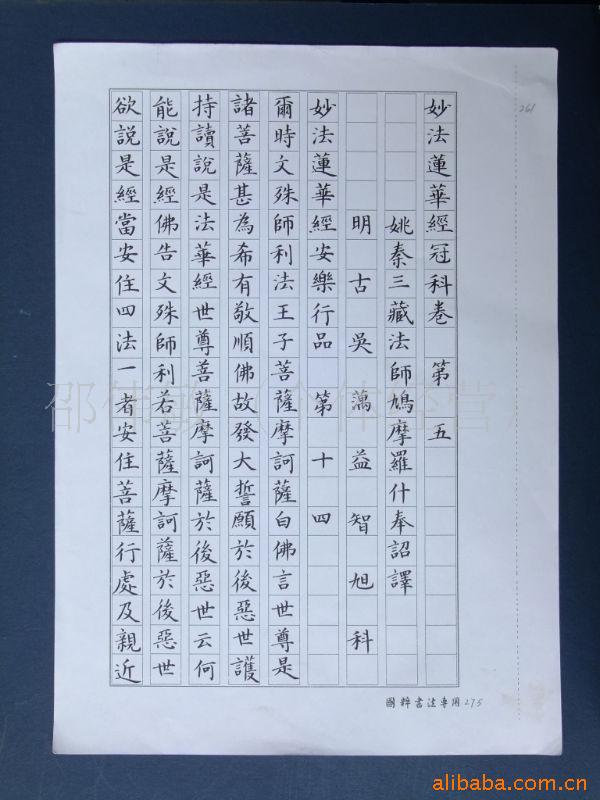 妙法蓮華經冠科卷 第 五
姚秦三藏法師鳩摩羅什奉詔譯
明 古 吳 蕅 益 智 旭 科
妙法蓮華經安樂行品 第 十 四
爾時文殊師利法王子菩薩摩訶薩白佛言世尊是
諸菩薩甚為希有敬順佛故發大誓願於後惡世護
持讀說是法華經世尊菩薩摩訶薩於後惡世云何
能說是經佛告文殊師利若菩薩摩訶薩於後惡世
欲說是經當安住四法一者安住菩薩行處及親近
261
國粹書法專用275
alibaba.com.cn